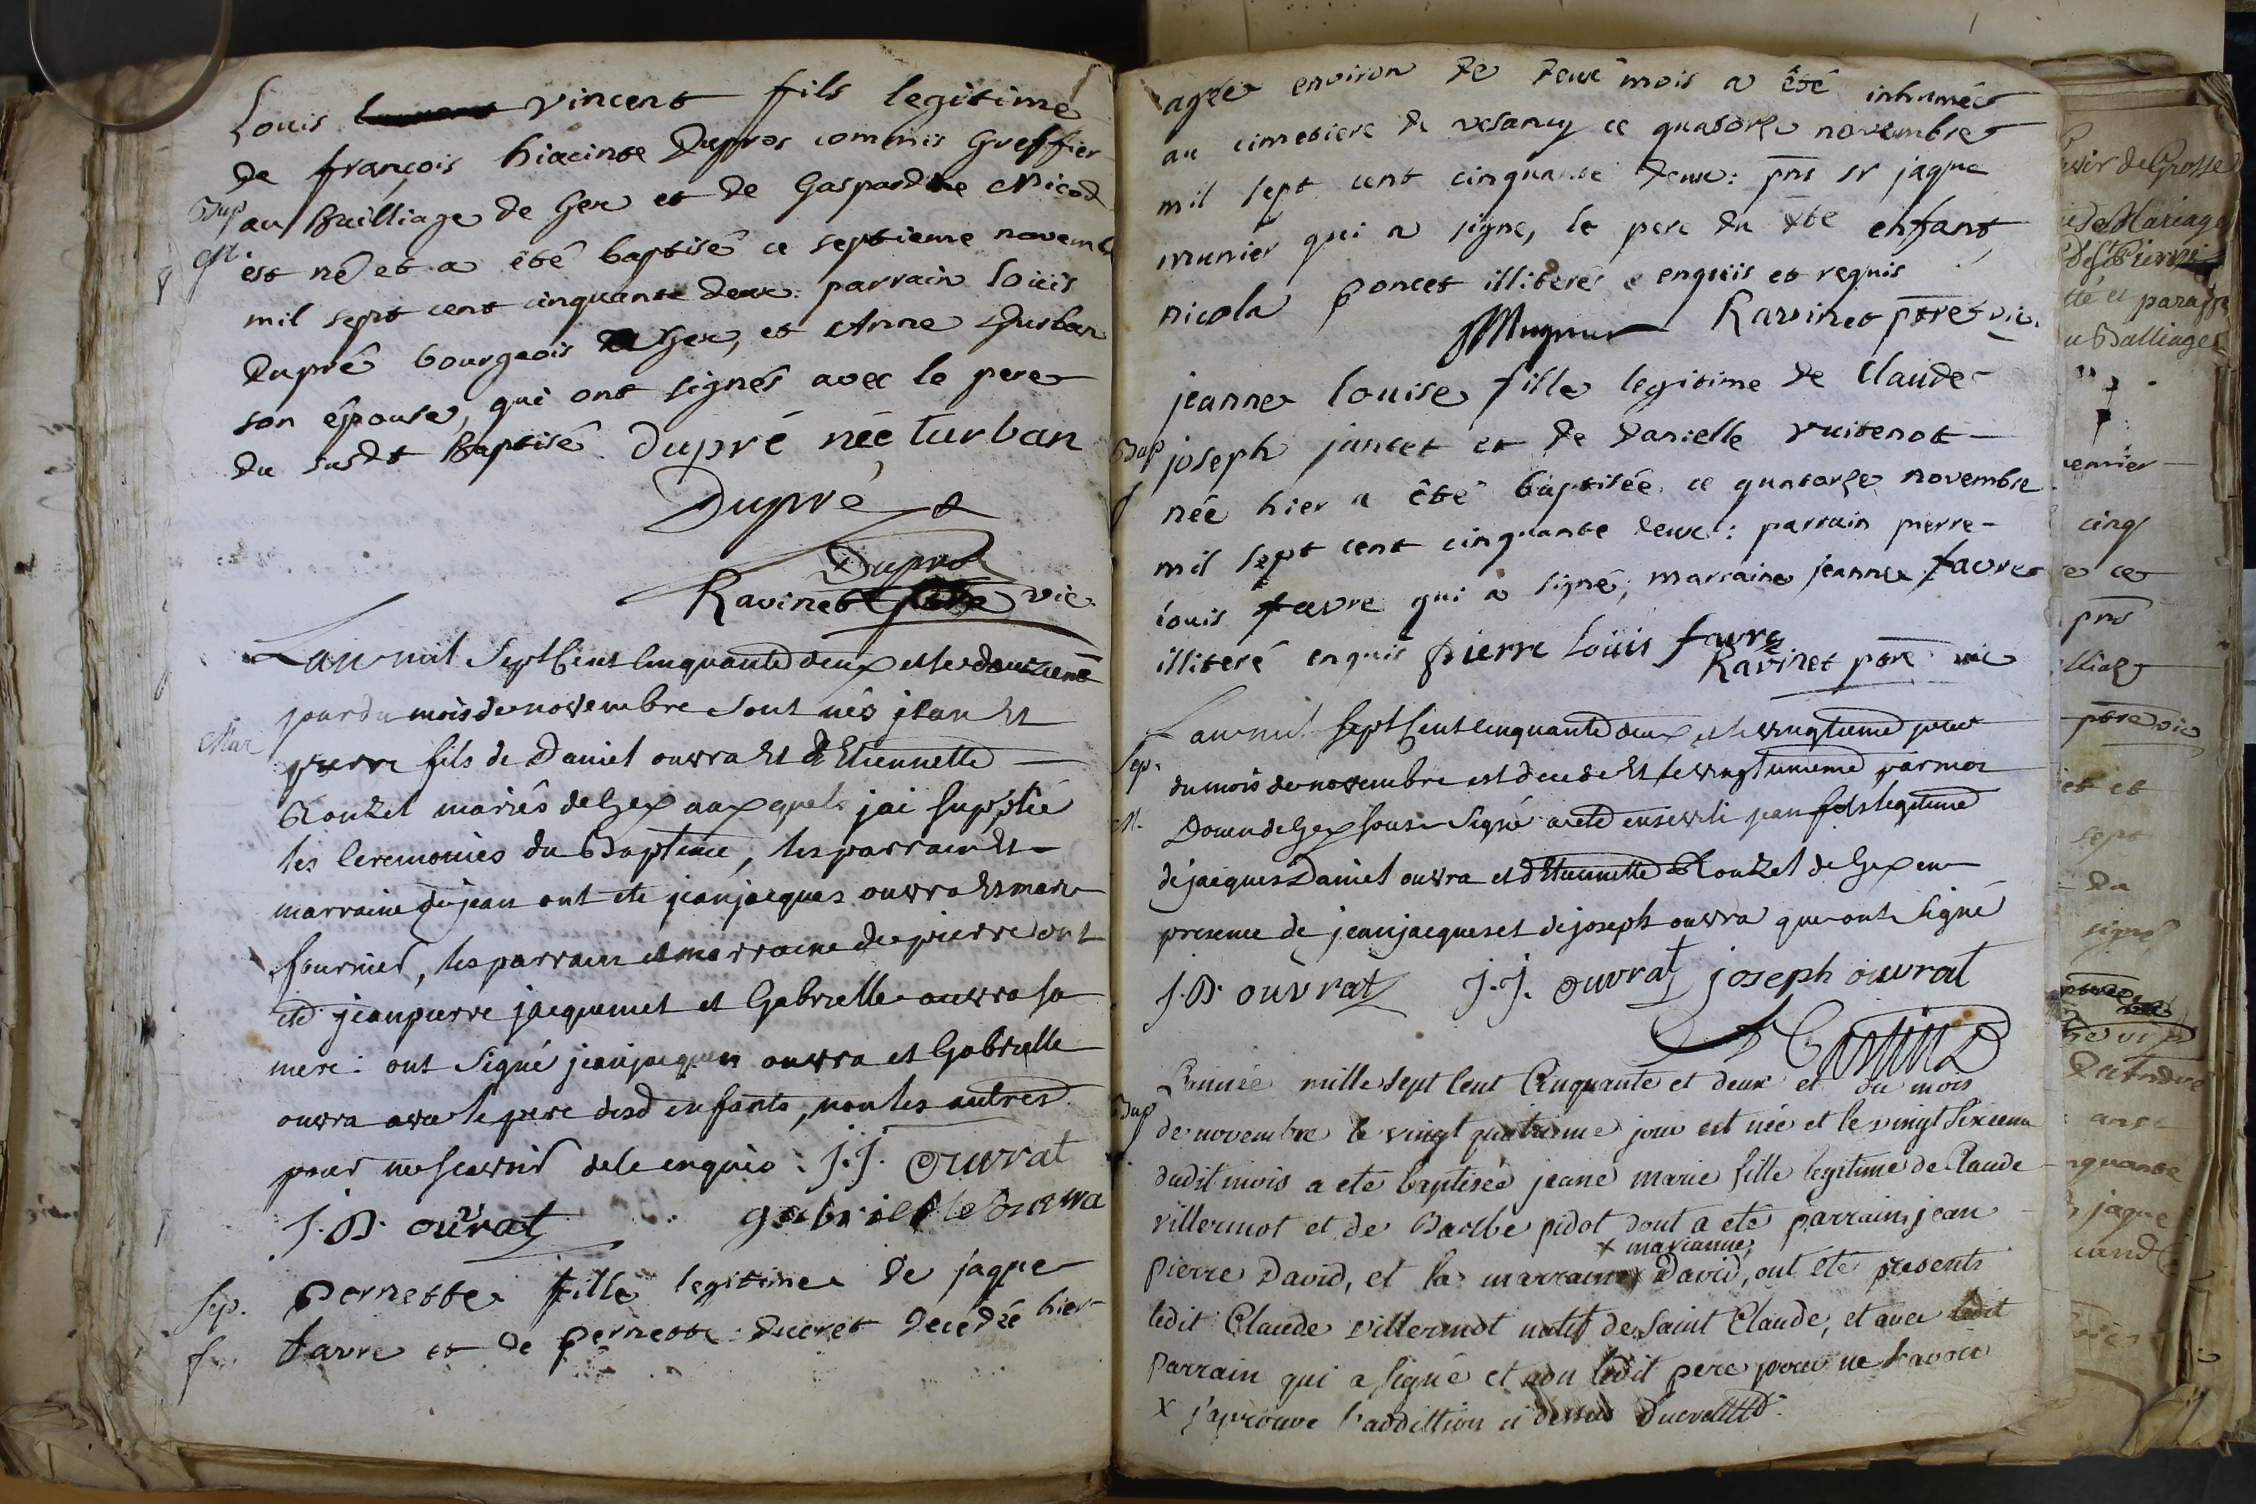 Louis vincent fils legitime
de françois hiacinte Dupras commis Greffier
Bap au Bailliage de Gex et de Gaspardine Nicod
M. est né et a été baptisé ce septieme novem
mil sept cent cinquante deux: parrain loüis
Dupré bourgeois de Gex, et Anne Turban
son épouse, qui ont signés avec le pere
du susdt Baptisé. Dupré née turban
Dupré
Dupras
Ravinet ptre vic.
Lan mil Sept Cent Cinquante deux et le douzieme
jour du mois de novembre sont nés jean Et
Mar
pierre fils de Daniel ouvra Et d'Etiennette
Rouzet mariés de Gex aux quels jai supplié
les Ceremonies du Baptême, les parrain Et
marraine de jean ont ete jean jacques ouvra Et marie
fournier, les parrain et marraine de pierre ont
ete jean pierre jacquemet et Gabrielle ouvra sa
mere: ont Signé jean jacques ouvra et Gabrielle
ouvra avec le pere desd enfants, non les autres
pour ne scavoir de le enquis: J.J. Ouvrat
J.D. ouvrat gabrielle ouvra
Sep. Pernette fille legitime de jaque
f. favre et de pernette ducret decedée hier
agée environ de deux mois a été inhumée
au cimetiere de vesancy ce quatorze novembre
mil sept cent cinquante deux: pnt sr jaque
munier qui a signé, le pere du dte enfant
nicola poncet illiteré enquis et requis
Mugnier Ravinet ptre vic.
jeanne louise fille legitime de Claude
Bap joseph jantet et de Danielle vuitenot
f née hier a été baptisée ce quatorze novembre
mil sept cent cinquante deux: parrain pierre
louis favre qui a signé, marraine jeanne favre
illiteré enquis pierre Loüis favre
Ravinet ptre vic
Lan mil Sept Cent Cinquante deux et le vingtieme jour
Sep. du mois de novembre est decede Et le vingt unieme par moi
M. Doien de Gex sous Signé a ete enseveli jean fils legitime
de jacques Daniel ouvra et d'Etiennette Rouzet de Gex en
presence de jean jacques et de joseph ouvra qui ont Signé
J.D. ouvrat J.J. Ouvrat joseph ouvrat
L'année mille sept Cent Cinquante et deux et du mois
Bap de novembre le vingt quatrieme jour est née et le vingt sixieme
dudit mois a eté baptisée jeane marie fille legitime de Claude
villermot et de Barbe pidot dont a eté parrain jean
x marianne
Pierre David, et la marraine x David, ont eté presents
ledit Claude villermot natif de saint Claude, et avec ledit
Parrain qui a signé et non ledit pere pour ne savoir
x j'aprouve l'addittion ci dessus